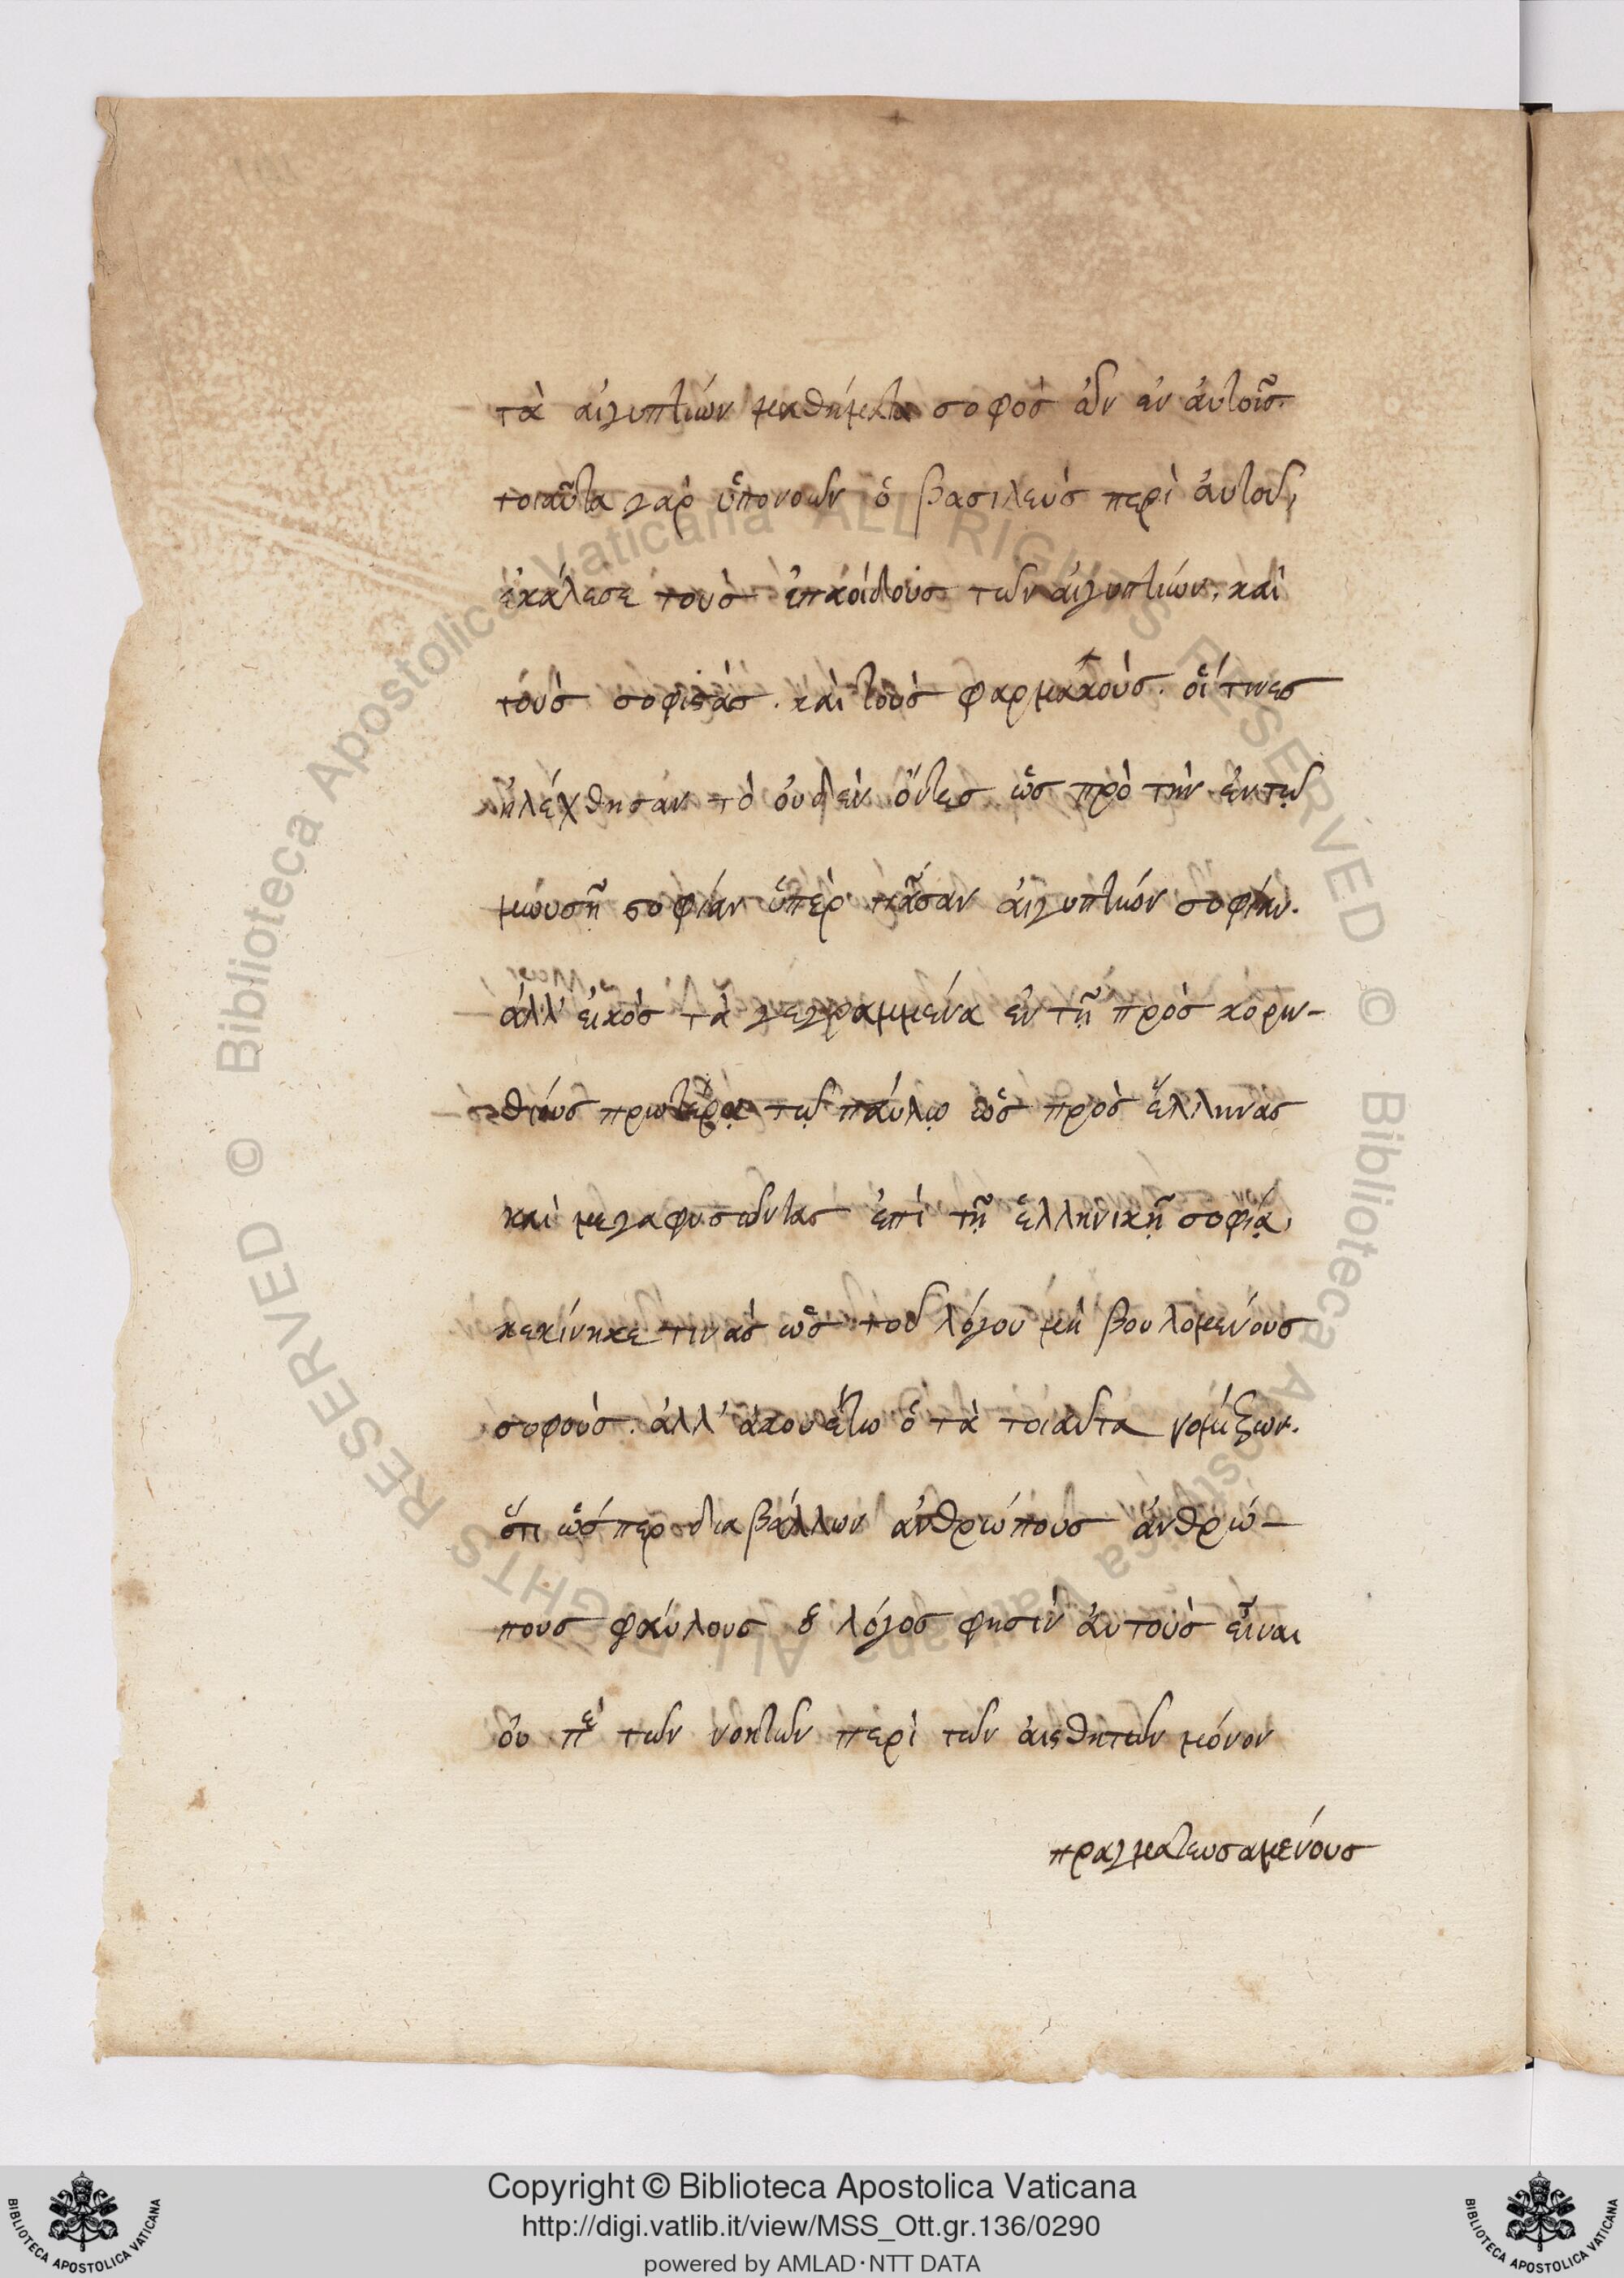 τὰ αἰγυπτίων μαθήματα σοφὸς ὢν ἐν ἀυτοῖς.
τοιαῦτα γὰρ ὑπονοῶν ὁ βασιλεὺς περὶ ἀυτοῦ,
ἐκάλεσε τοὺς ἐπαοίδοὺς τῶν ἀιγυπτίων, καὶ
τοὺς σοφιστάς. καὶ τοὺς φαρμακοὺς. οἵ τινες
ἠλέχθησαν τὸ ὀυδὲν ὄντες ὡς πρὸ τὴν ἐν τῷ
μωυσῆ σοφίαν ὑπὲρ πᾶσαν ἀιγυπτίων σοφίαν.
ἀλλ' ἐικὸς τὰ γεγραμμένα ἐν τῇ πρὸς κορην-
θίους πρωτέρᾳ τῷ παύλῳ ὡς πρὸς ἕλληνας
καὶ μεγαφυσῶντας ἐπὶ τῇ ἑλληνικῇ σοφίᾳ,
κεκίνηκε τινὰς ὡς τοῦ λόγου μὴ βουλομένους
σοφοὺς. ἀλλ' ἀκουέτω ὁ τὰ τοιαῦτα νομίζων.
ὅτι ὥσπερ διαβάλλων ἀνθρώπους ἀνθρώ-
πους φαύλους ὁ λόγος φησὶν ἀυτοὺς εἶναι
ὀυ πὲ τῶν νοητῶν περὶ τῶν ἀισθητῶν μόνον
πραγματευσαμένους
Copyright © Biblioteca Apostolica Vaticana
http://digi.vatlib.it/view/MSS_Ott.gr.136/0290
powered by AMLAD·NTT DATA
BIBLIOTECA APOSTOLICA VATICANA
BIBLIOTECA APOSTOLICA VATICANA
© Biblioteca Apostolica Vaticana ALL RIGHTS RESERVED © Biblioteca Apostolica Vaticana ALL RIGHTS RESERVED